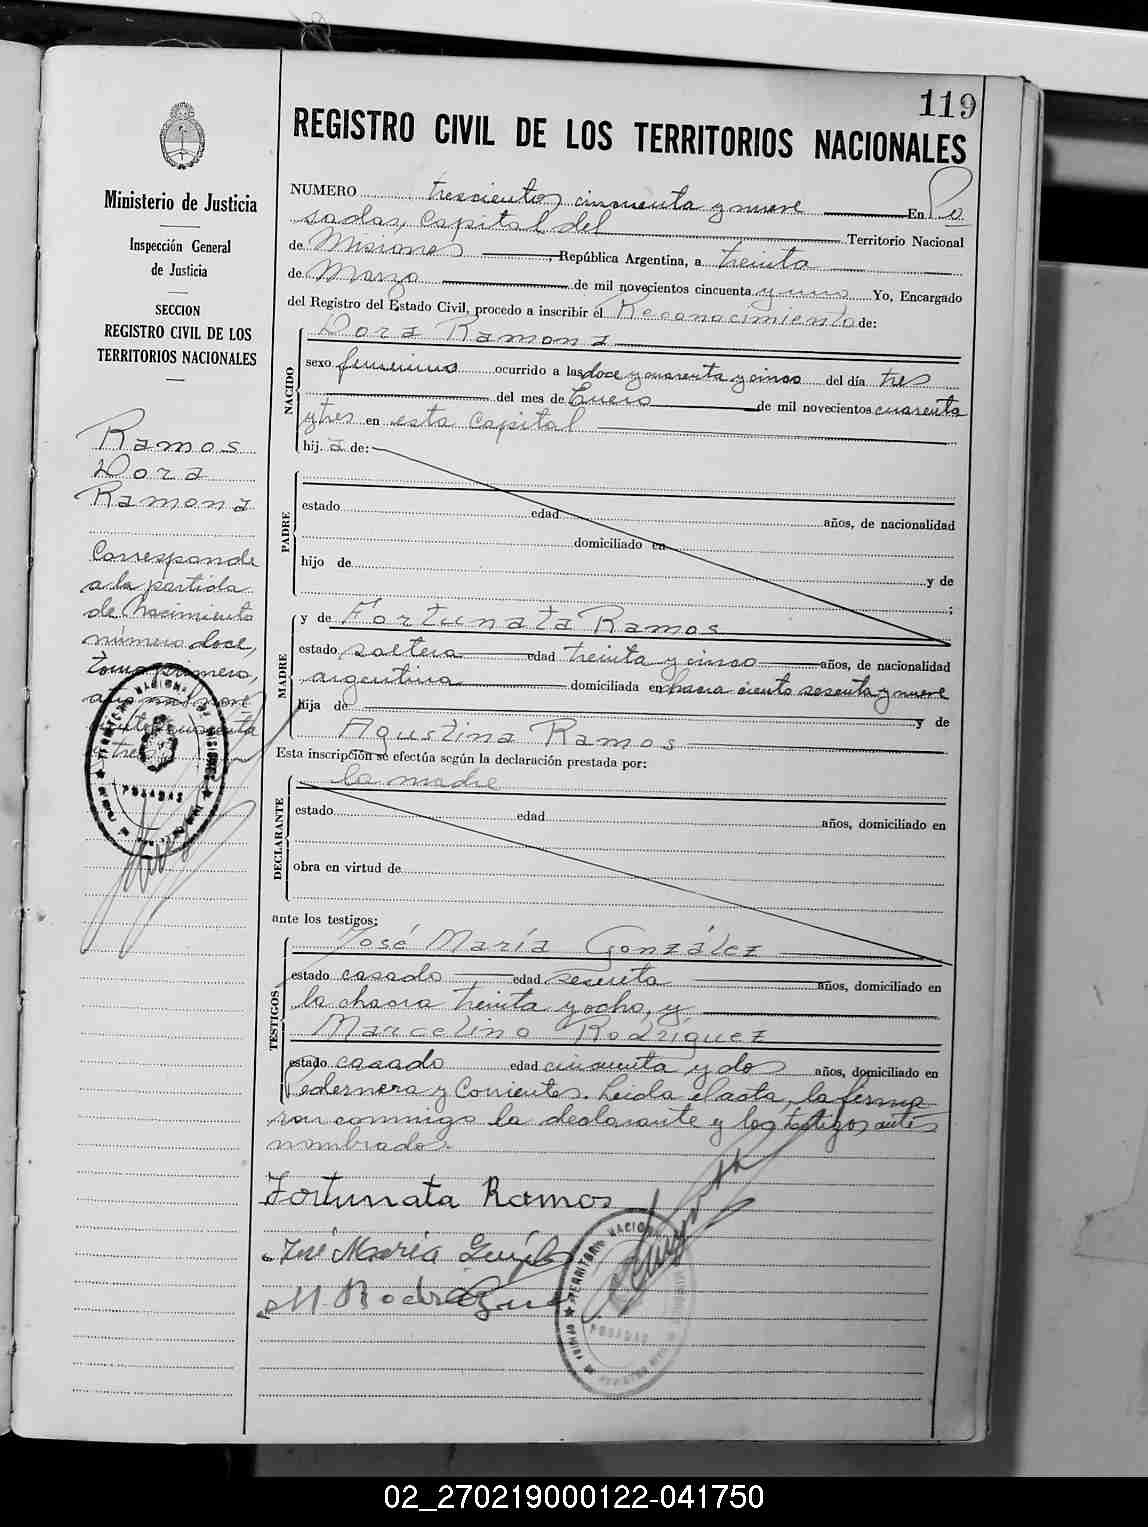 119
REGISTRO CIVIL DE LOS TERRITORIOS NACIONALES
Ministerio de Justicia
Inspección General
de Justicia
SECCION
REGISTRO CIVIL DE LOS
TERRITORIOS NACIONALES
Ramos
Dora
Ramona
Corresponde
a la partida
de Nacimiento
número doce,
tomo primero,
año mil nove
cientos cuarenta
y tres
NUMERO trescientos cincuenta y nueve En Po
sadas, Capital del Territorio Nacional
de Misiones, República Argentina, a treinta
de Marzo de mil novecientos cincuenta y uno Yo, Encargado
del Registro del Estado Civil, procedo a inscribir el Reconocimiento de:
NACIDO
Dora Ramona
sexo femenino ocurrido a las doce y cuarenta y cinco del día tres
del mes de Enero de mil novecientos cuarenta
y tres en esta Capital
hij a de:
PADRE
estado edad años, de nacionalidad
domiciliado en
hijo de y de
;
MADRE
y de Fortunata Ramos
estado soltera edad treinta y cinco años, de nacionalidad
argentina domiciliada en chacra ciento sesenta y nueve
hija de y de
Agustina Ramos
Esta inscripción se efectúa según la declaración prestada por:
DECLARANTE
la madre
estado edad años, domiciliado en
obra en virtud de
ante los testigos:
TESTIGOS
José María González
estado casado edad sesenta años, domiciliado en
la chacra treinta y ocho, y
Marcelino Rodríguez
estado casado edad cincuenta y dos años, domiciliado en
Pedernera y Corrientes. Leida el acta, la firma
ron conmigo la declarante y los testigos antes
nombrados.
Fortunata Ramos
José María González
M. Rodríguez
TERRITORIO NACIONAL DE MISIONES
POSADAS
TERRITORIO NACIONAL DE MISIONES
POSADAS
02_270219000122-041750